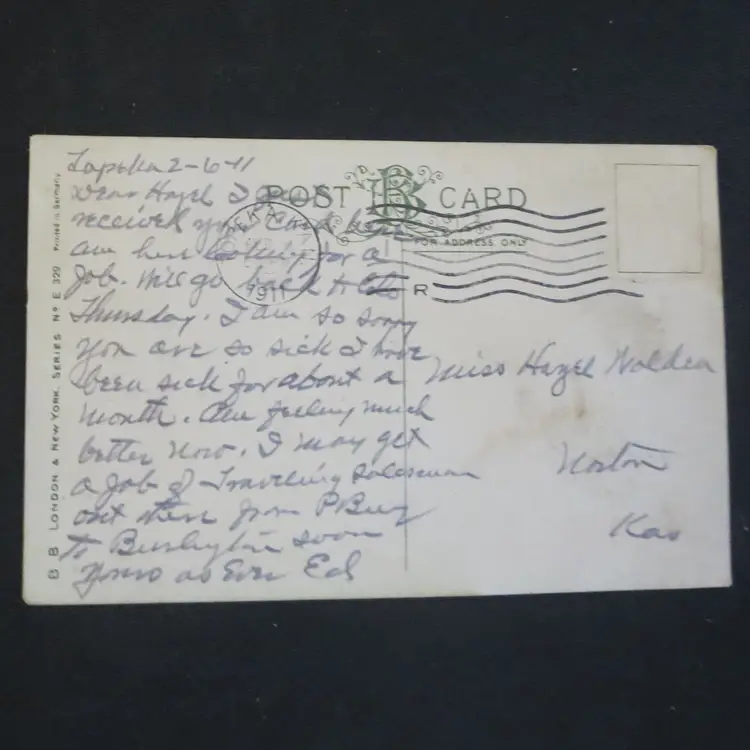 Topeka 2-6-11
Dear Hazel I
received your Card
am here looking for a
job. Will go back to
Thursday. I am so sorry
you are so sick I have
been sick for about a
month. Am feeling much
better now. I may get
a job of Traveling salesman
out there from
to Burlington soon
Yours as Ever Ed
POST B CARD
FOR ADDRESS ONLY
EKA
1911
R
Miss Hazel Walden
Norton
Kas
B B LONDON & NEW YORK. SERIES No E 329 Printed in Germany